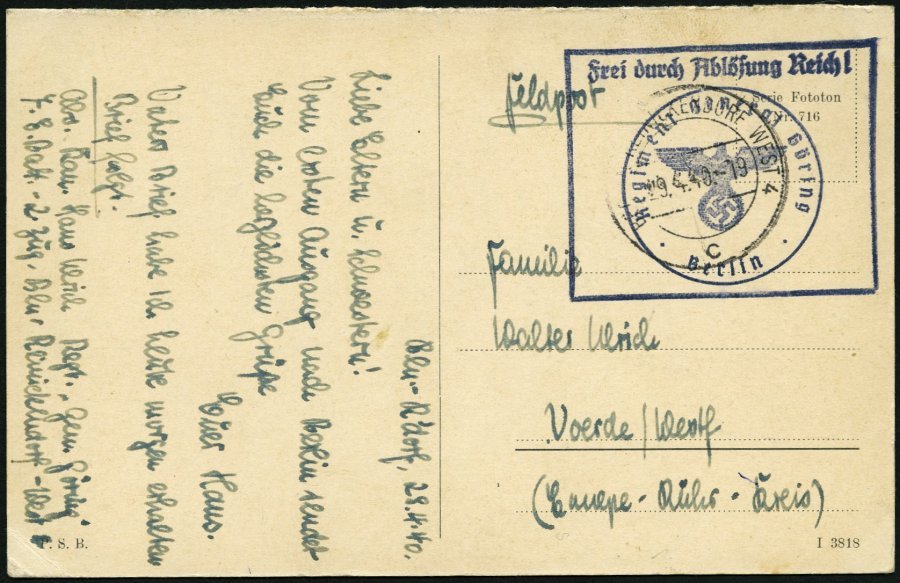 Bln.-R'dorf, 28.4.40.
Liebe Eltern u. Schwestern!
Vom ersten Ausgang nach Berlin sendet
Euch die herzlichsten Grüße
Euer Hans.
Vaters Brief habe ich heute morgen erhalten
Brief folgt.
Abs. Kan. Hans Urich Regt. „Gen. Göring"
7. E. Batt. - 2. Zug - Bln. Reinickendorf-West
P. S. B.
Feldpost
Frei durch Ablösung Reich!
Serie Fototon
Nr. 716
Regiment General Göring
· Berlin ·
REINICKENDORF WEST 4
29.4.40.-19
c
Familie
Walter Urich
Voerde/Westf
(Ennepe-Ruhr-Kreis)
I 3818